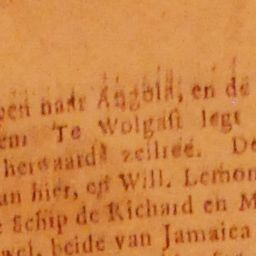 naar Angola, en de
Te Wolgast legt
herwaards zeilree. De
an hier, en Will. Lemon
Schip de Richard en M
beide van Jamaica